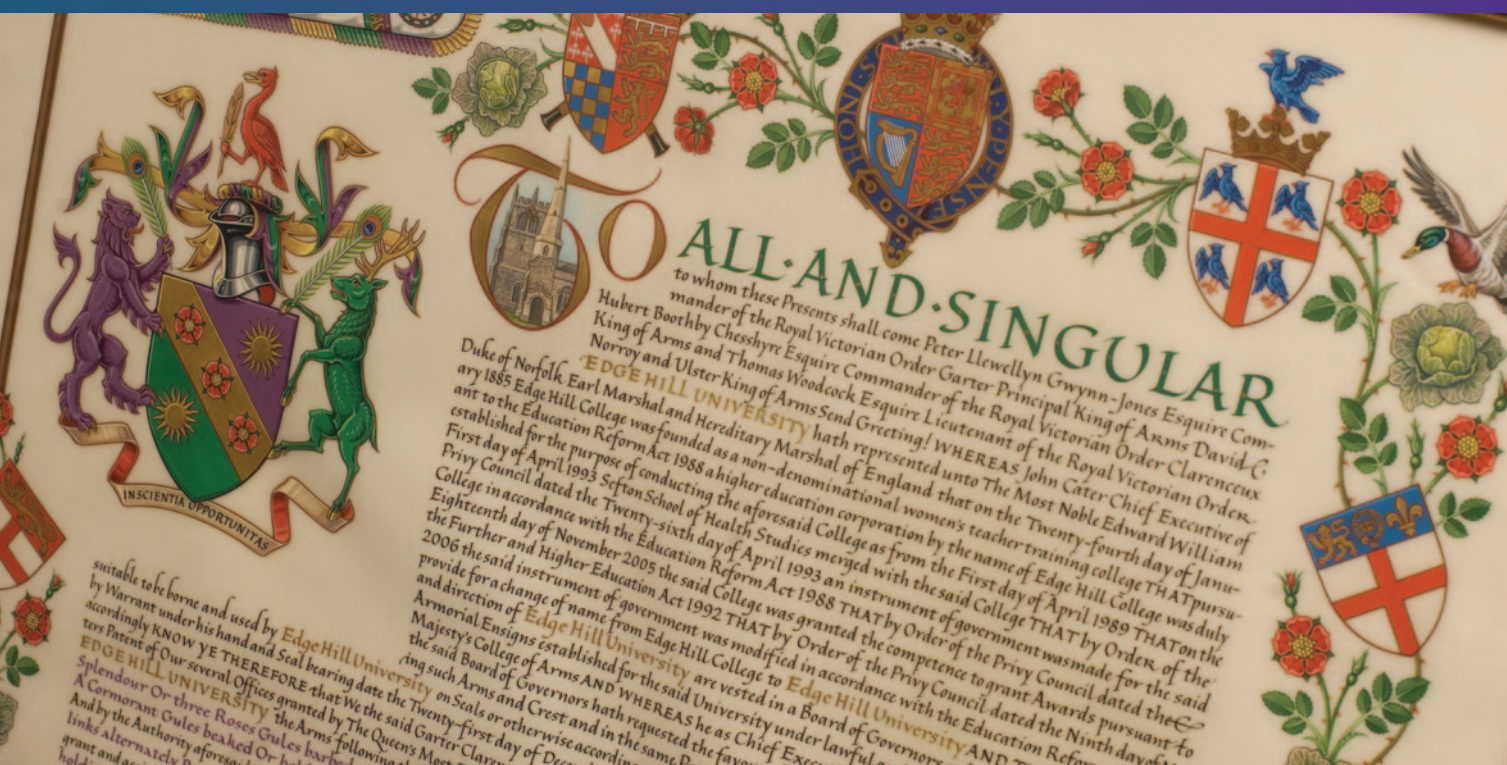 HONI S Y PENSE
TO ALL·AND·SINGULAR
to whom these Presents shall come Peter Llewellyn Gwynn-Jones Esquire Com-
mander of the Royal Victorian Order Garter Principal King of Arms David
Hubert Boothby Chesshyre Esquire Commander of the Royal Victorian Order Clarenceux
King of Arms and Thomas Woodcock Esquire Lieutenant of the Royal Victorian Order
Norroy and Ulster King of Arms Send Greeting! WHEREAS John Cater Chief Executive of
EDGE HILL UNIVERSITY hath represented unto The Most Noble Edward William
Duke of Norfolk Earl Marshal and Hereditary Marshal of England that on the Twenty-fourth day of Janu-
ary 1885 Edge Hill College was founded as a non-denominational women's teacher training college THAT pursu-
ant to the Education Reform Act 1988 a higher education corporation by the name of Edge Hill College was duly
established for the purpose of conducting the aforesaid College as from the First day of April 1989 THAT on the
First day of April 1993 Sefton School of Health Studies merged with the said College THAT by Order of the
Privy Council dated the Twenty-sixth day of April 1993 an instrument of government was made for the said
College in accordance with the Education Reform Act 1988 THAT by Order of the Privy Council dated the
Eighteenth day of November 2005 the said College was granted the competence to grant Awards pursuant to
the Further and Higher Education Act 1992 THAT by Order of the Privy Council dated the Ninth day of
2006 the said instrument of government was modified in accordance with the Education
provide for a change of name from Edge Hill College to Edge Hill University AND
and direction of Edge Hill University are vested in a Board of Governors
Armorial Ensigns established for the said University under lawful
Majesty's College of Arms AND WHEREAS he as Chief
the said Board of Governors hath requested the
ing such Arms and Crest and in the same
INSCIENTIA OPPORTUNITAS
suitable to be borne and used by Edge Hill University on Seals or otherwise
by Warrant under his hand and Seal bearing date the Twenty-first day of
accordingly KNOW YE THEREFORE that We the said Garter
ters Patent of Our several Offices granted by The Queen's Most
EDGE HILL UNIVERSITY the Arms following
Splendour Or three Roses Gules barbed
A Cormorant Gules beaked Or
links alternately
And by the Authority
grant and